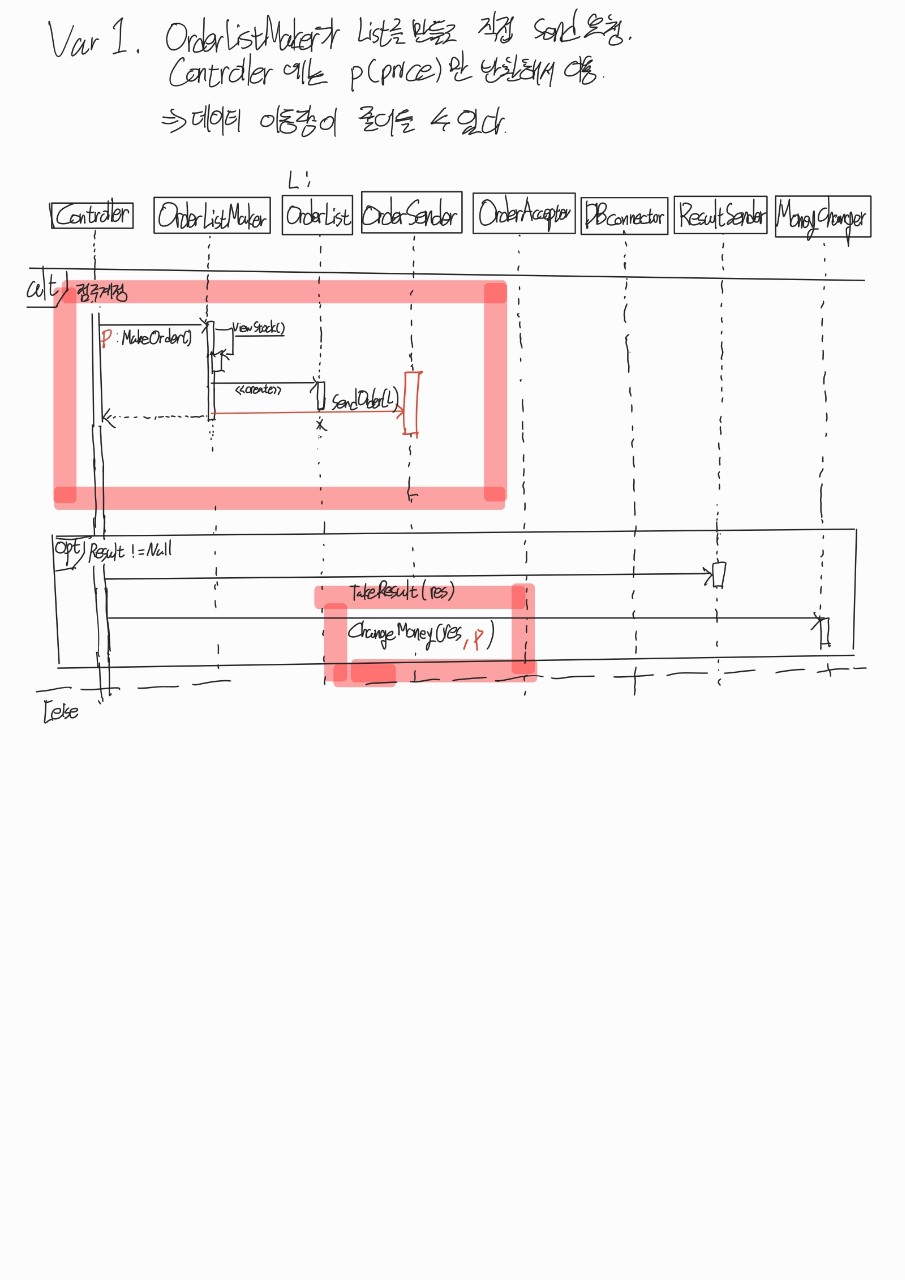 Var 1. OrderListMaker가 List를 만들고 직접 Send 요청.
Controller 에는 p(price)만 반환해서 이동.
⇒ 데이터 이동량이 줄어들 수 있다.
L:
Controller OrderListMaker OrderList OrderSender OrderAcceptor DBconnector ResultSender MoneyChanger
alt 점주계정
ViewStock()
P : MakeOrder()
<<create>>
SendOrder(L)
opt Result != Null
TakeResult(res)
ChangeMoney(res, P)
[else